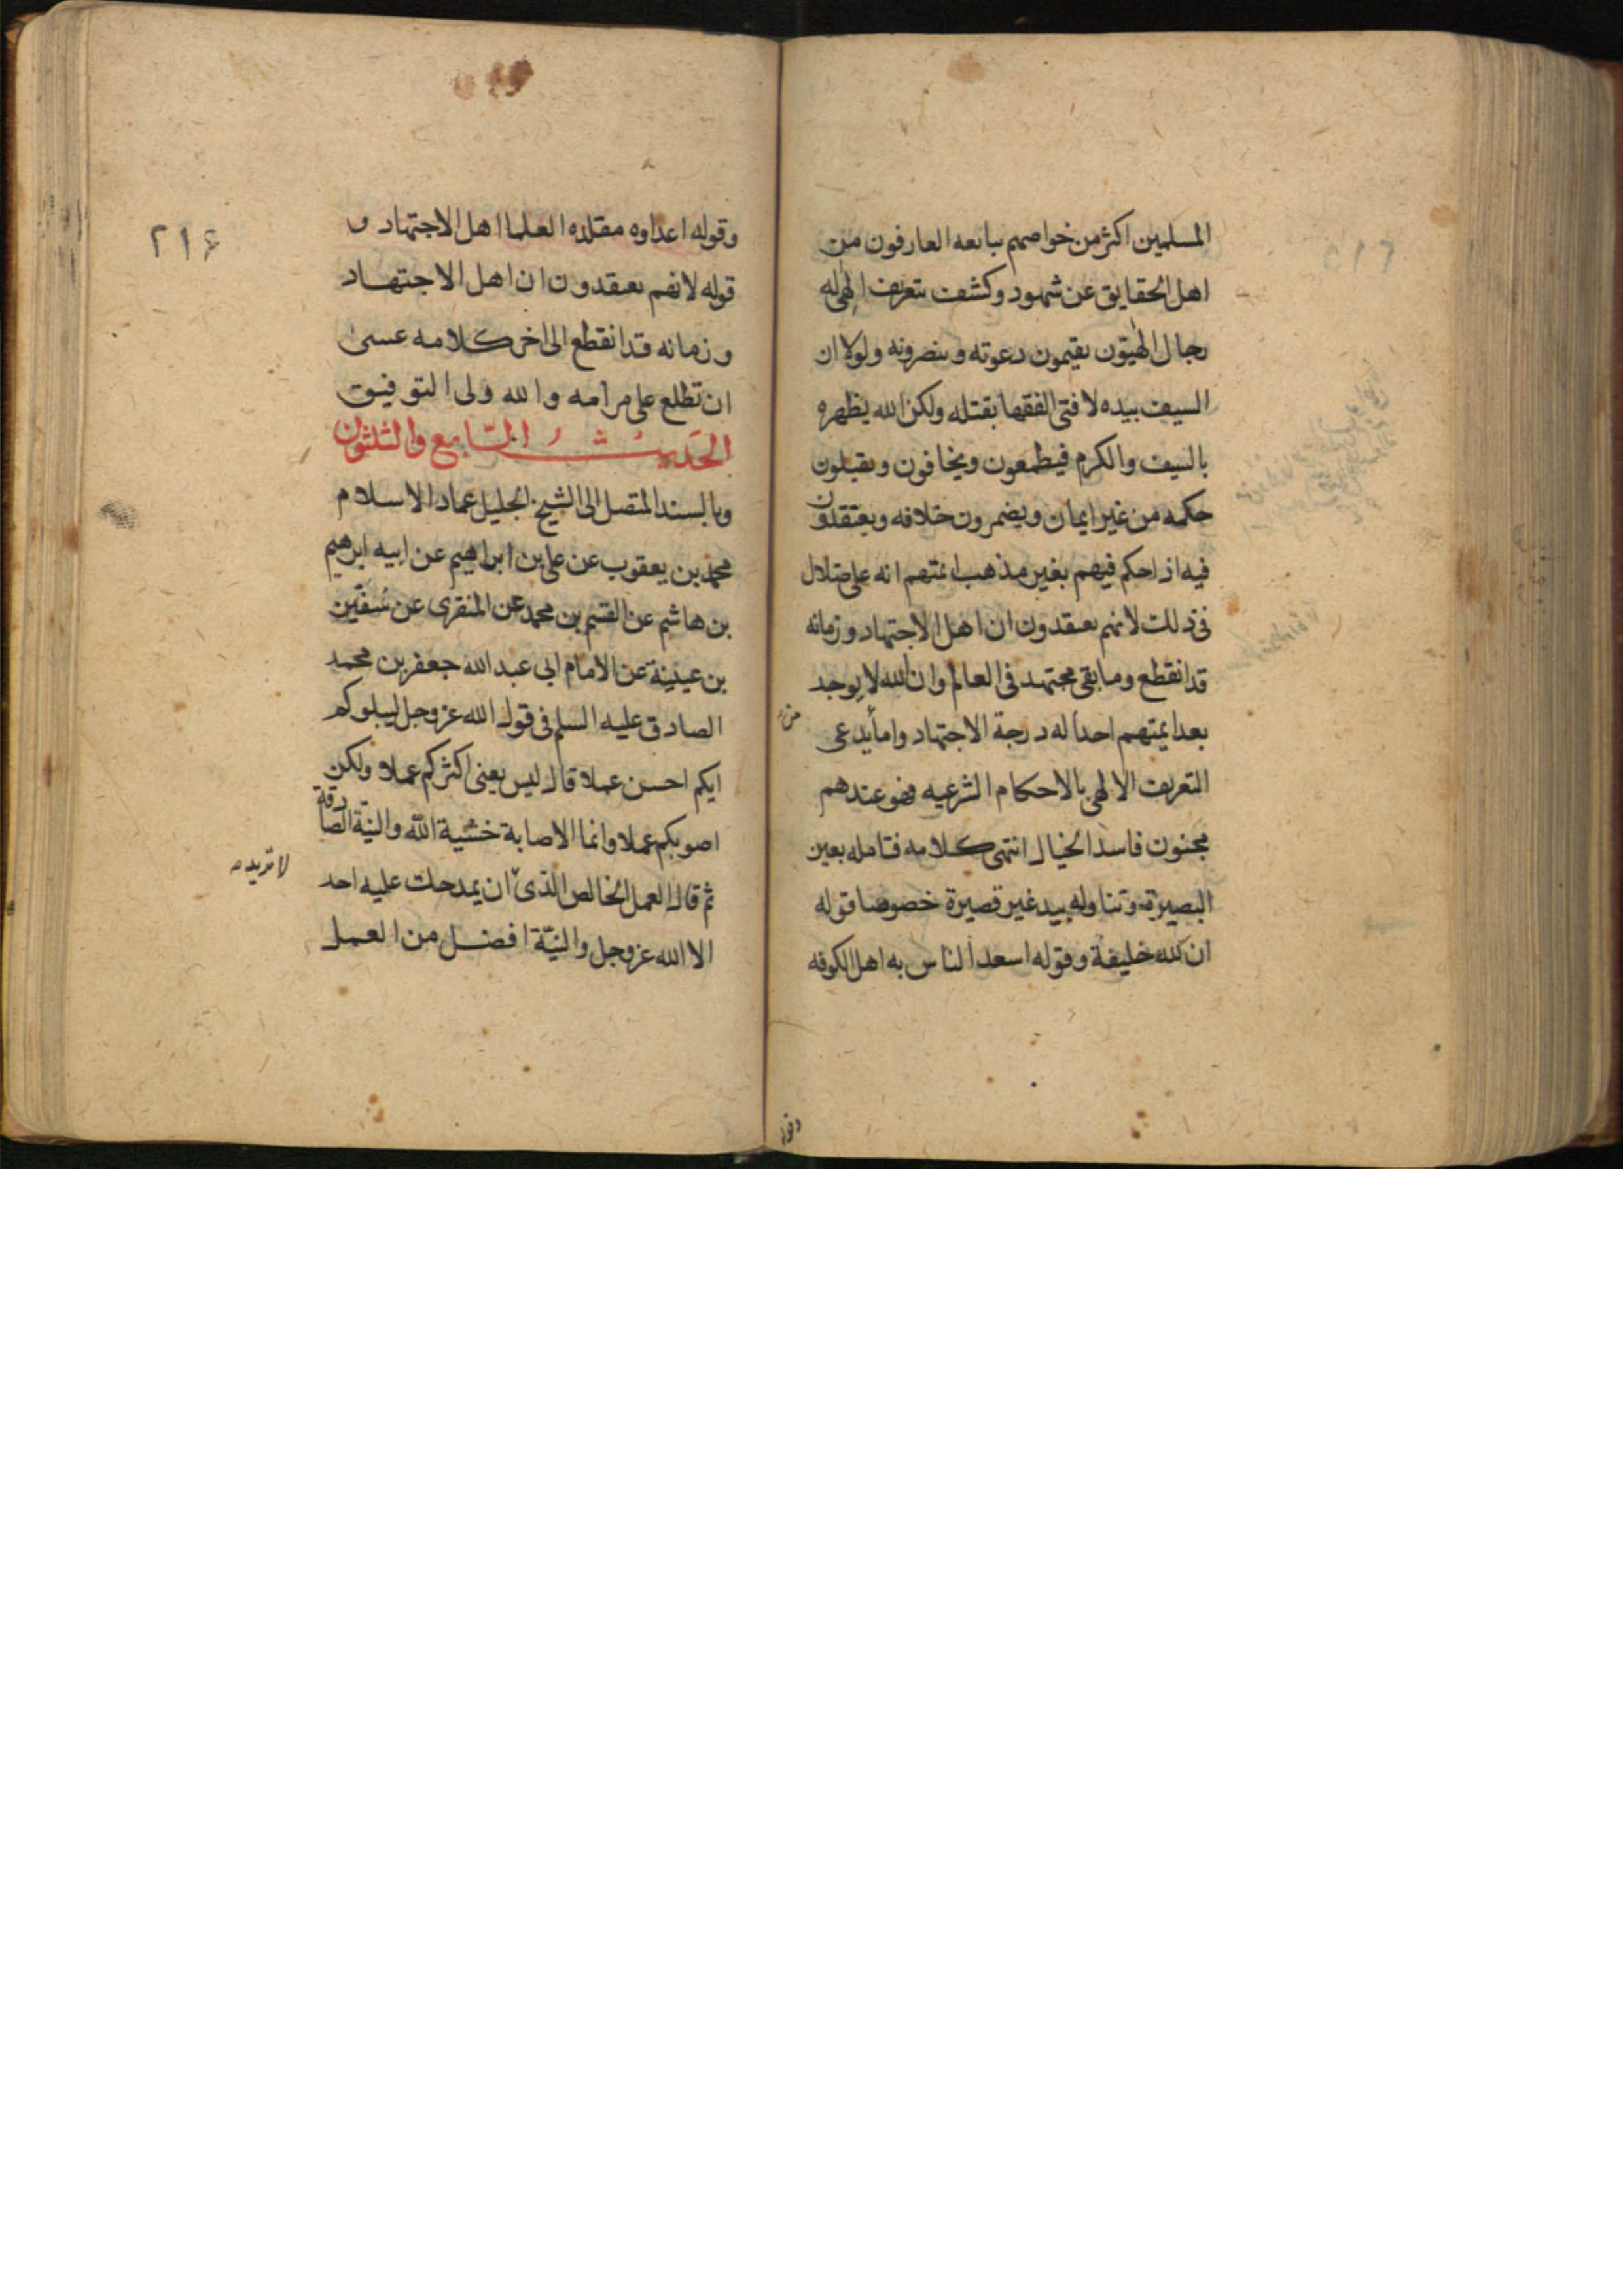 المسلمين اكثر من خواصهم يبايعه العارفون من
اهل الحقايق عن شهود وكشف بتعريف الهى له
رجال الهيّون يقيمون دعوته وينصرونه ولولا ان
السيف بيده لافتى الفقها بقتله ولكن الله يظهره
بالسيف والكرم فيطمعون ويخافون ويقبلون
حكمه من غير ايمان ويضمرون خلافه ويعتقدون
فيه اذا حكم فيهم بغير مذهب ائمتهم انه على ضلال
فى ذلك لانهم يعتقدون ان اهل الاجتهاد وزمانه
قد انقطع وما بقى مجتهد فى العالم وان الله لا يوجد
بعد ايمتهم احدا له درجة الاجتهاد واما من يدعى
التعريف الالهى بالاحكام الشرعيه فهو عندهم
مجنون فاسد الخيال انتهى كلامه فتامله بعين
البصيرة وتناوله بيد غير قصيرة خصوصا قوله
ان لله خليفة وقوله اسعد الناس به اهل الكوفه
وقوله
٢١۶
وقوله اعداوه مقلده العلما اهل الاجتهاد و
قوله لانهم يعتقدون ان اهل الاجتهاد
وزمانه قد انقطع الى اخر كلامه عسى
ان تطلع على مرامه والله ولى التوفيق
الحديث السّابع والثلثون
وبالسند المتصل الى الشيخ الجليل عماد الاسلام
محمد بن يعقوب عن على بن ابراهيم عن ابيه ابرهيم
بن هاشم عن القسم بن محمد عن المنقرى عن سُفين
بن عيينة عن الامام ابى عبد الله جعفر بن محمد
الصادق عليه السلم فى قول الله عز وجل ليبلوكم
ايكم احسن عملا قال ليس يعنى اكثركم عملا ولكن
اصوبكم عملا وانما الاصابة خشية الله والنيّة الصادقة
ثم قال العمل الخالص الذى ان يمدحك عليه احد
لا تريد
الا الله عز وجل والنيّة افضل من العمل